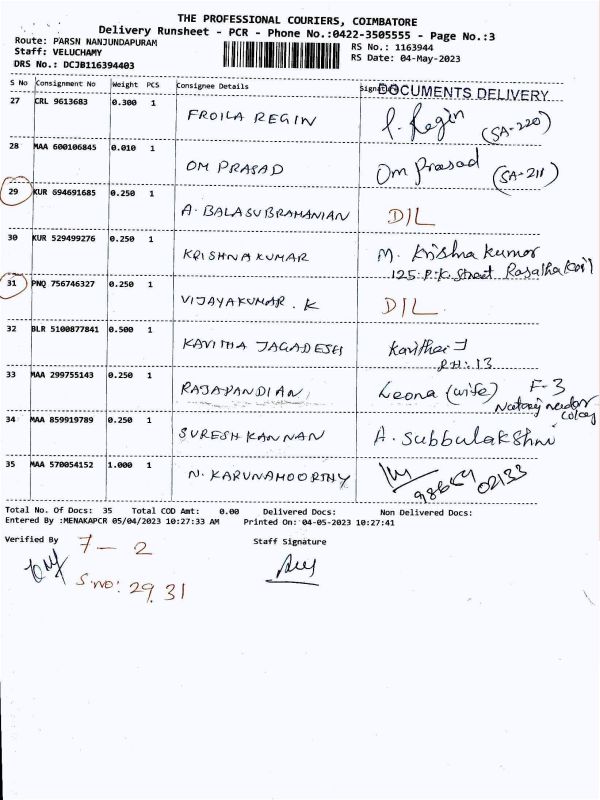 THE PROFESSIONAL COURIERS, COIMBATORE
Delivery Runsheet - PCR - Phone No.:0422-3505555 - Page No.:3
Route: PARSN NANJUNDAPURAM
RS No.: 1163944
Staff: VELUCHAMY
RS Date: 04-May-2023
DRS No.: DCJB116394403
S No Consignment No Weight PCS Consignee Details Signature
DOCUMENTS DELIVERY
27 CRL 9613683 0.300 1 FROILA REGIN P. Regin (SA-220)
28 MAA 600106845 0.010 1 OM PRASAD Om Prasad (SA-211)
29 KUR 694691685 0.250 1 A. BALASUBRAMANIAN DIL
30 KUR 529499276 0.250 1 KRISHNAKUMAR M. Krishna kumar
125. P.K. Street
31 PNQ 756746327 0.250 1 VIJAYAKUMAR . K DIL
32 BLR 5100877841 0.500 1 KAVITHA JAGADESH J
PH: 13
33 MAA 299755143 0.250 1 RAJAPANDIAN Leona (wife) F-3
34 MAA 859919789 0.250 1 SURESH KANNAN A. Subbulakshmi
35 MAA 570054152 1.000 1 N. KARUNAMOORTHY 02133
Total No. Of Docs: 35 Total COD Amt: 0.00 Delivered Docs: Non Delivered Docs:
Entered By :MENAKAPCR 05/04/2023 10:27:33 AM Printed On: 04-05-2023 10:27:41
Verified By
Staff Signature
7 - 2
S.no: 29, 31